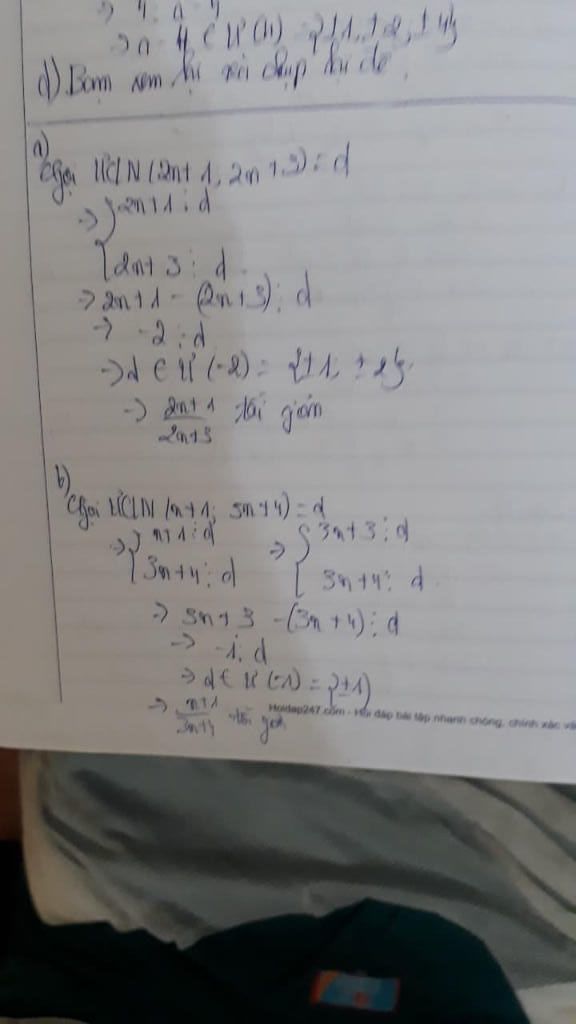 ⇒ 4 ⋮ n - 4
⇒ n - 4 ∈ Ư(4) = {±1, ±2, ±4}
d) Bạn xem lại và chụp lại đề.
a)
Gọi ƯCLN (2n+1, 2n+3) = d
⇒ { 2n+1 ⋮ d
{ 2n+3 ⋮ d
⇒ 2n+1 - (2n+3) ⋮ d
⇒ -2 ⋮ d
⇒ d ∈ Ư(-2) = {±1, ±2}.
⇒ 2n+1 / 2n+3 tối giản
b)
Gọi ƯCLN (n+1; 3n+4) = d
⇒ { n+1 ⋮ d ⇒ { 3n+3 ⋮ d
{ 3n+4 ⋮ d { 3n+4 ⋮ d
⇒ 3n+3 - (3n+4) ⋮ d
⇒ -1 ⋮ d
⇒ d ∈ Ư(-1) = {±1}
⇒ n+1 / 3n+4 tối giản
Hoidap247.com - Hỏi đáp bài tập nhanh chóng, chính xác